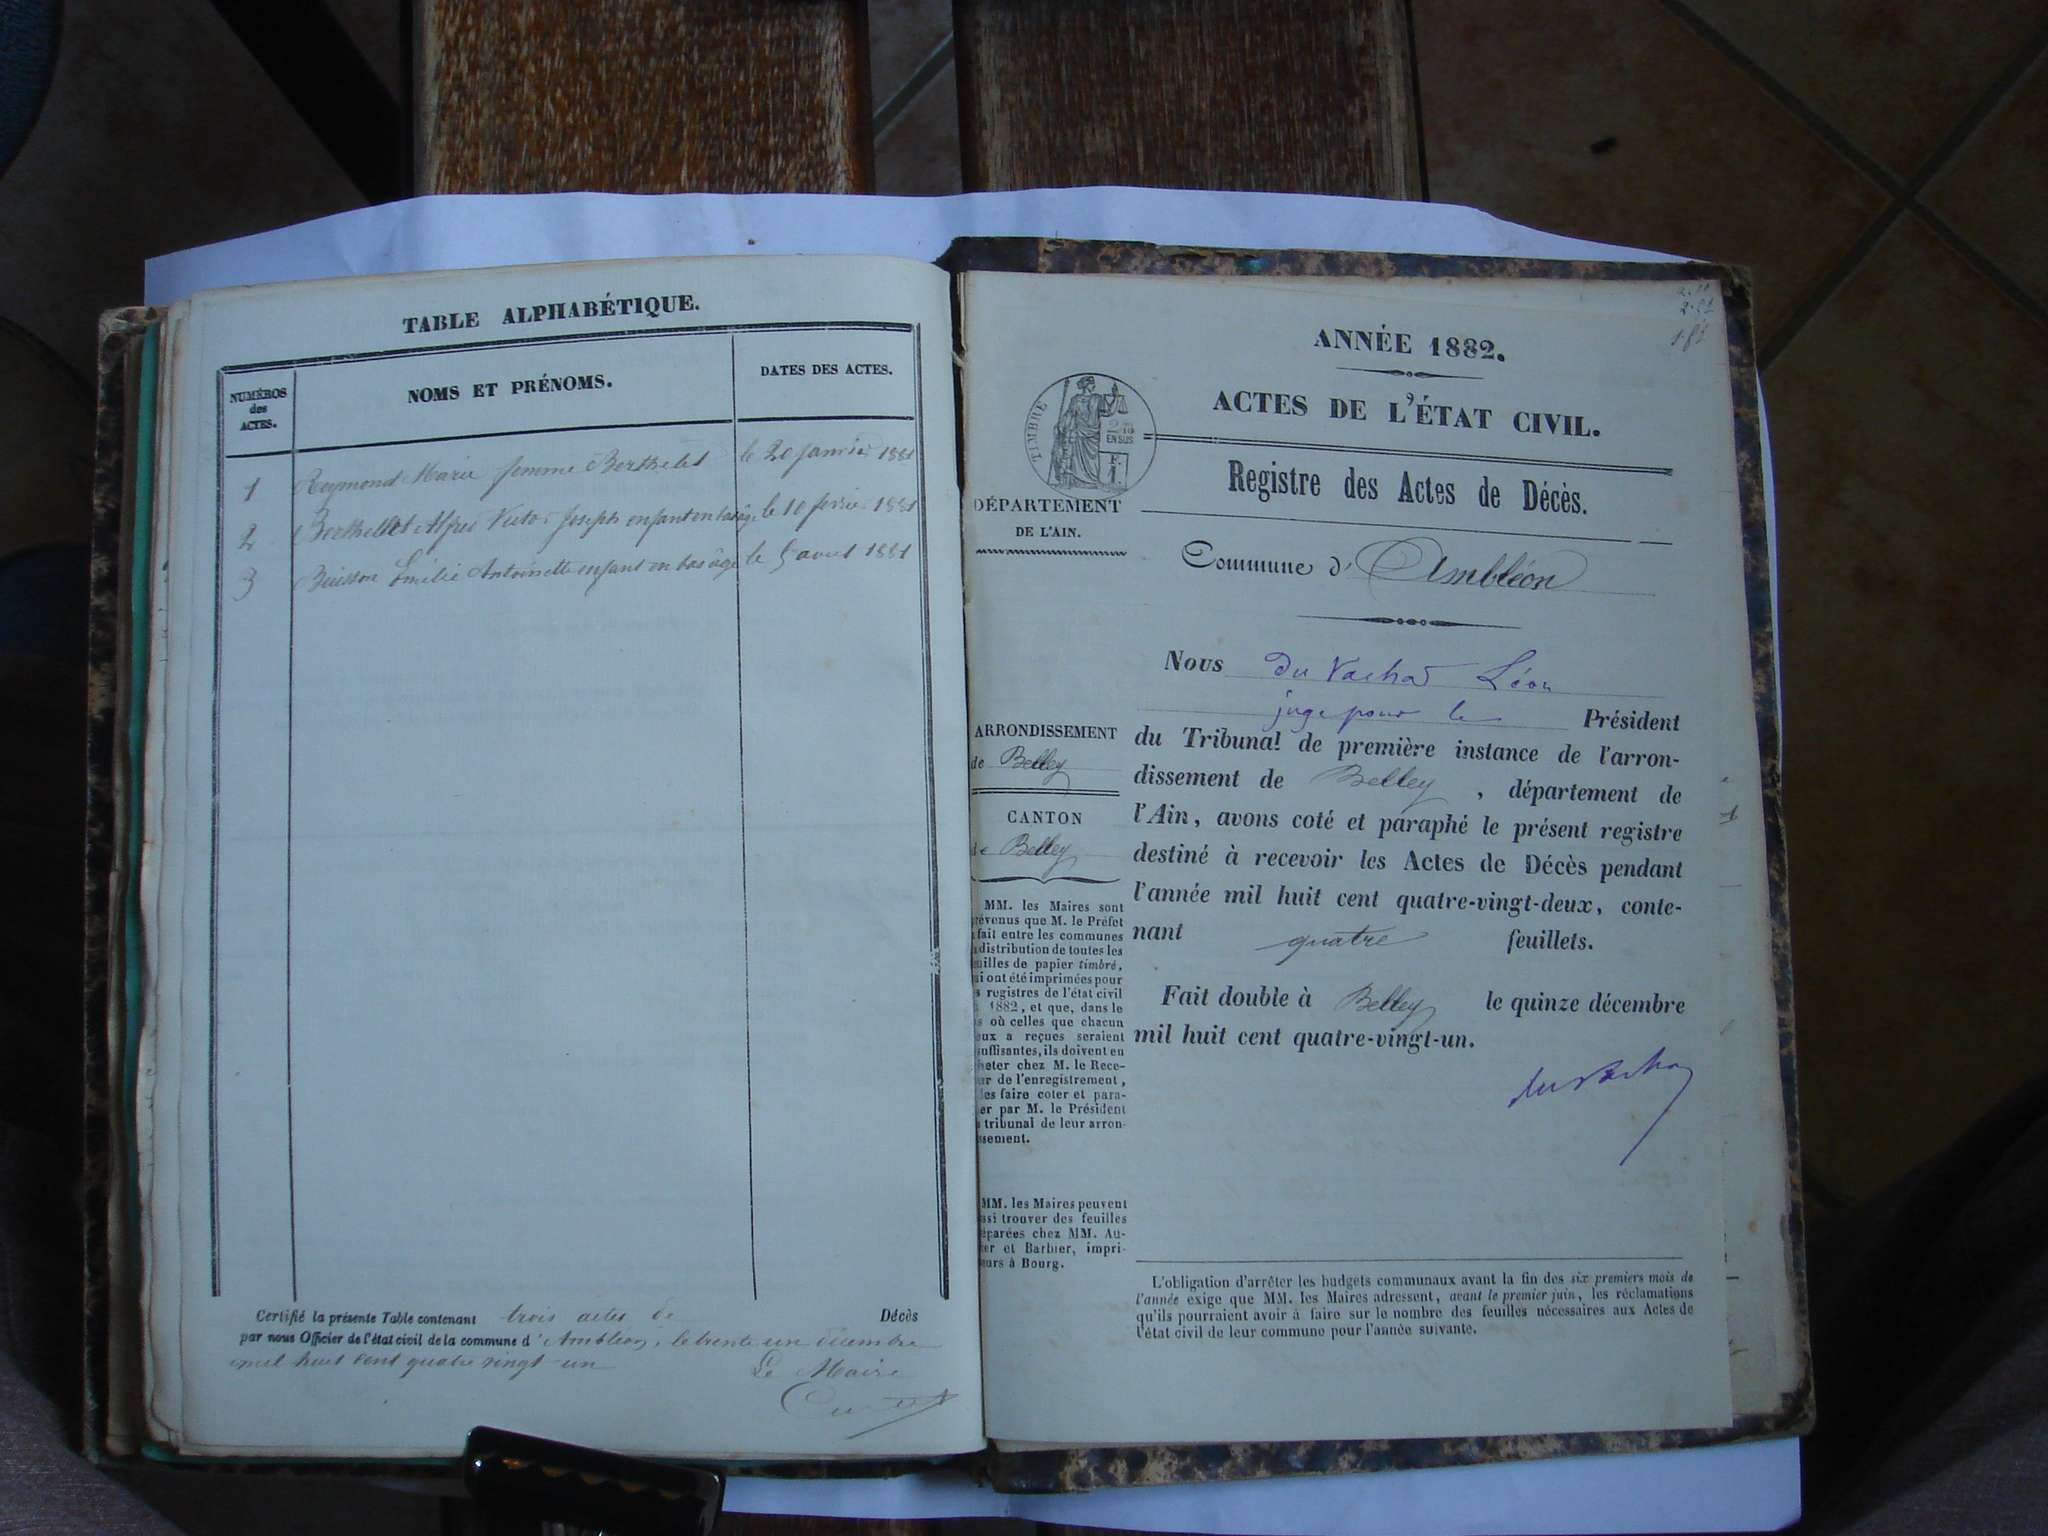 TABLE ALPHABÉTIQUE.
NUMÉROS
des
ACTES.
NOMS ET PRÉNOMS.
DATES DES ACTES.
1 Reymond Marie femme Berthelet le 20 janvier 1881
2 Berthelot Alfred Victor Joseph enfant en bas âge le 10 février 1881
3 Buisson Emélie Antoinette enfant en bas âge le 5 avril 1881
Certifié la présente Table contenant trois actes de Décès
par nous Officier de l'état civil de la commune d'Ambléon, le trente un décembre
mil huit cent quatre vingt-un
Le Maire
ANNÉE 1882.
ACTES DE L'ÉTAT CIVIL.
Registre des Actes de Décès.
Commune d'Ambléon
TIMBRE
2/10
EN SUS
F.
1.
DÉPARTEMENT
DE L'AIN.
ARRONDISSEMENT
de Belley
CANTON
de Belley
MM. les Maires sont
prévenus que M. le Préfet
fait entre les communes
distribution de toutes les
feuilles de papier timbré,
qui ont été imprimées pour
registres de l'état civil
1882, et que, dans le
où celles que chacun
eux a reçues seraient
suffisantes, ils doivent en
heter chez M. le Rece-
ur de l'enregistrement,
les faire coter et para-
er par M. le Président
tribunal de leur arron-
ssement.
MM. les Maires peuvent
ssi trouver des feuilles
éparées chez MM. Au-
er et Barbier, impri-
eurs à Bourg.
Nous du Vachat Léon
juge pour le Président
du Tribunal de première instance de l'arron-
dissement de Belley, département de
l'Ain, avons coté et paraphé le présent registre
destiné à recevoir les Actes de Décès pendant
l'année mil huit cent quatre-vingt-deux, conte-
nant quatre feuillets.
Fait double à Belley le quinze décembre
mil huit cent quatre-vingt-un.
du Vachat
L'obligation d'arrêter les budgets communaux avant la fin des six premiers mois de
l'année exige que MM. les Maires adressent, avant le premier juin, les réclamations
qu'ils pourraient avoir à faire sur le nombre des feuilles nécessaires aux Actes de
l'état civil de leur commune pour l'année suivante.